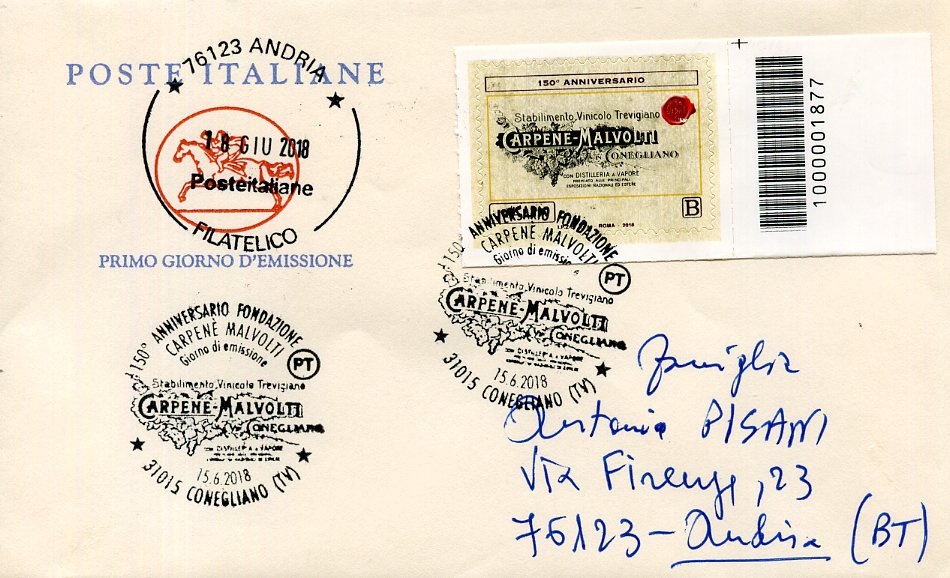 76123 ANDRIA
POSTE ITALIANE
18 GIU 2018
Posteitaliane
FILATELICO
PRIMO GIORNO D'EMISSIONE
150° ANNIVERSARIO
Stabilimento Vinicolo Trevigiano
CARPENÈ-MALVOLTI
CONEGLIANO
CON DISTILLERIA A VAPORE
PREMIATO ALLE PRINCIPALI
ESPOSIZIONI NAZIONALI ED ESTERE
B
ROMA - 2018
1000001877
150° ANNIVERSARIO FONDAZIONE
CARPENÈ MALVOLTI
Giorno di emissione
PT
Stabilimento Vinicolo Trevigiano
CARPENÈ-MALVOLTI
CONEGLIANO
CON DISTILLERIA A VAPORE
15.6.2018
31015 CONEGLIANO (TV)
150° ANNIVERSARIO FONDAZIONE
CARPENÈ MALVOLTI
Giorno di emissione
PT
Stabilimento Vinicolo Trevigiano
CARPENÈ-MALVOLTI
CONEGLIANO
CON DISTILLERIA A VAPORE
15.6.2018
31015 CONEGLIANO (TV)
famiglia
Antonio PISANI
VIA Firenze, 23
76123 - Andria (BT)